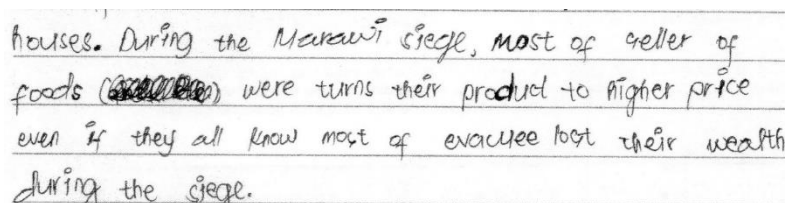 houses. During the Marawi siege, most of seller of
foods () were turns their product to higher price
even if they all know most of evacuee lost their wealth
during the siege.